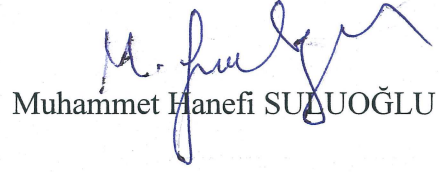 Muhammet Hanefi SULUOĞLU